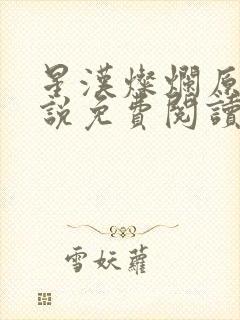 星漢燦爛原
說免費閱讀
雪妖蘿